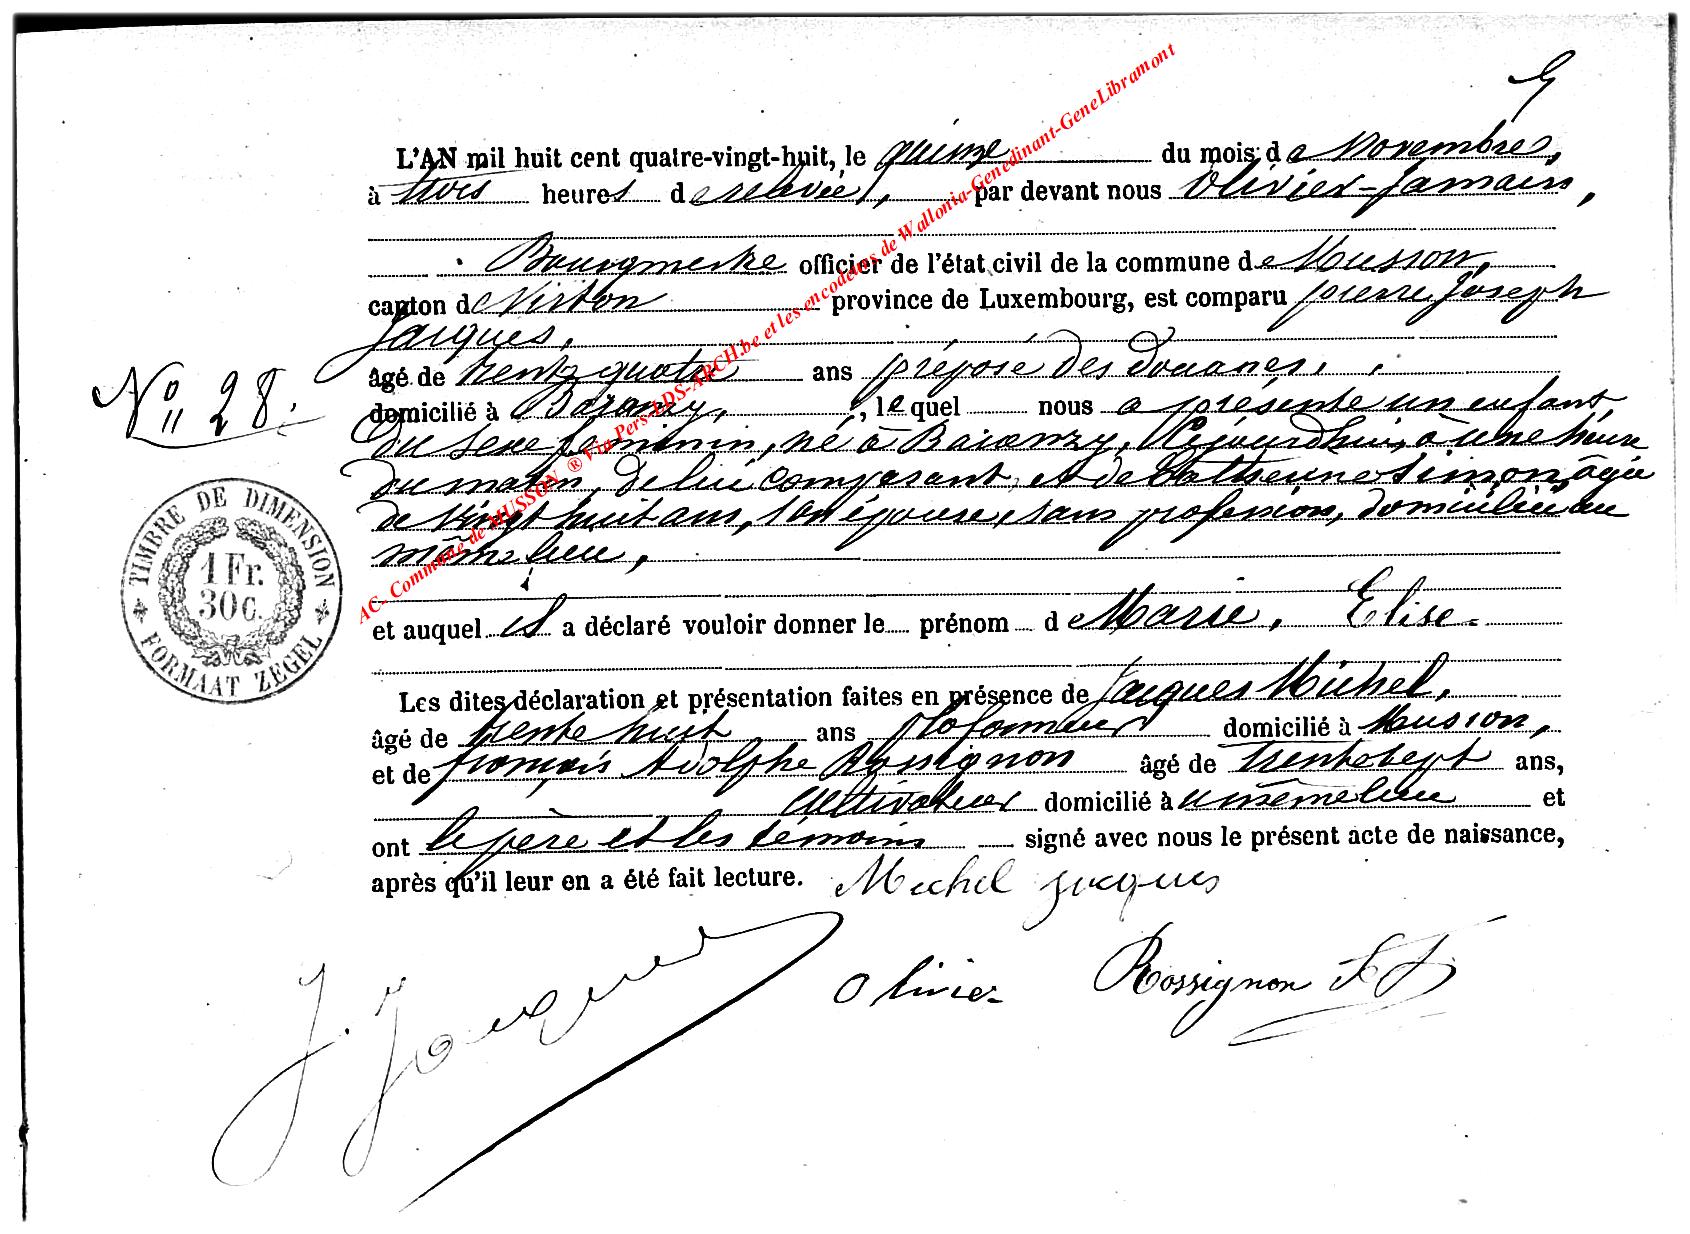 L'AN mil huit cent quatre-vingt-huit, le quinze du mois de Novembre,
à trois heures de relevée, par devant nous Olivier-Jamain,
Bourgmestre officier de l'état civil de la commune de Musson,
canton de Virton province de Luxembourg, est comparu pierre Joseph
Jacques,
âgé de trente quatre ans préposé des douanes,
N° 28.
domicilié à Baranzy, lequel nous a présenté un enfant
du sexe féminin, né à Baranzy, Cejourdhui, à une heure
du matin, de lui comparant, et de Catherine Simon, âgée
de vingt huit ans, son épouse, sans profession, domiciliée au
même lieu,
et auquel il a déclaré vouloir donner le prénom de Marie, Elise.
Les dites déclaration et présentation faites en présence de Jacques Michel,
âgé de trente huit ans plafonneur domicilié à Musson,
et de françois Adolphe Rossignon âgé de trente sept ans,
cultivateur domicilié à même lieu et
ont le père et les témoins signé avec nous le présent acte de naissance,
après qu'il leur en a été fait lecture. Michel Jacques
J. Jacques
Olivier
Rossignon
TIMBRE DE DIMENSION
1 Fr.
30 C.
FORMAAT ZEGEL
AC- Commune de MUSSON ® Via Pers-LDS-ARCH.be et les encodeurs de Wallonia-Genedinant-GeneLibramont